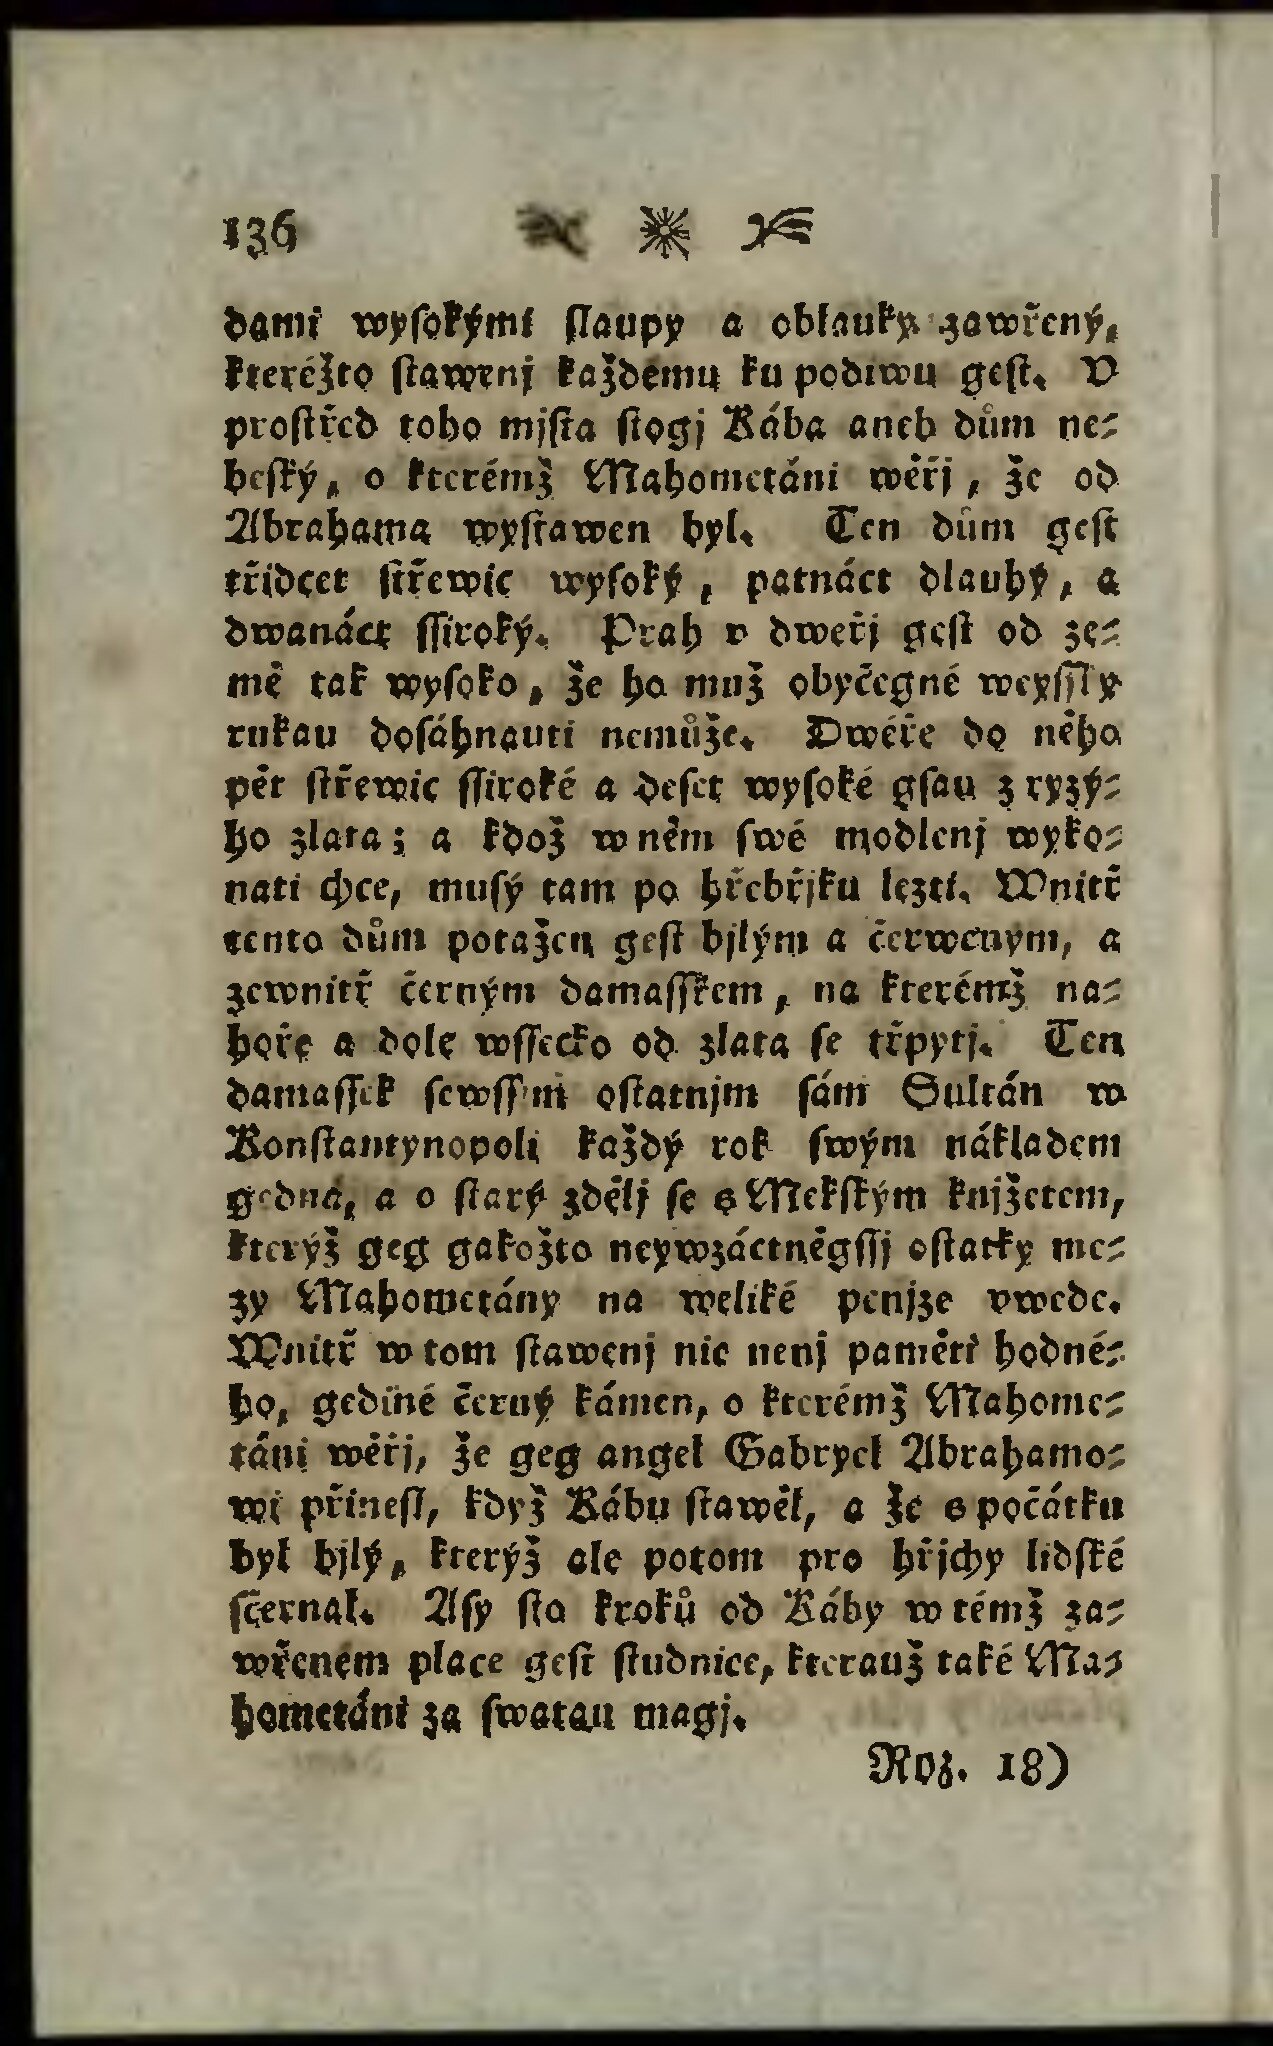 136
dami wysokými slaupy a oblauky zawřený,
kteréžto stawenj každému ku podiwu gest. V
prostřed toho mjsta stogj Kába aneb dům ne-
beský, o kterémž Mahometáni wěřj, že od
Abrahama wystawen byl. Ten dům gest
třidcet střewic wysoký, patnáct dlauhý, a
dwanáct ssiroký. Prah v dweřj gest od ze-
mě tak wysoko, že ho muž obyčegné weyssky
rukau dosáhnauti nemůže. Dwéře do něho
pět střewic ssiroké a deset wysoké gsau z ryzý-
ho zlata; a kdož w něm swé modlenj wyko-
nati chce, musý tam po hřebřjku lezti. Wnitř
tento dům potažen gest bjlým a čerweným, a
zewnitř černým damasskem, na kterémž na-
hoře a dole wssecko od zlata se třpytj. Ten
damassek sewssjm ostatnjm sám Sultán w
Konstantynopoli každý rok swým nákladem
gedná, a o starý zdělj se s Mekským knjžetem,
kterýž geg gakožto neywzáctněgssj ostatky me-
zy Mahometány na weliké penjze vwede.
Wnitř w tom stawenj nic nenj paměti hodné-
ho, gediné černý kámen, o kterémž Mahome-
táni wěřj, že geg angel Gabryel Abrahamo-
wi přinesl, když Kábu stawěl, a že s počátku
byl bjlý, kterýž ale potom pro hřjchy lidské
sčernal. Asy sto kroků od Káby w témž za-
wřeném place gest studnice, kterauž také Ma-
hometáni za swatau magj.
Roz. 18)